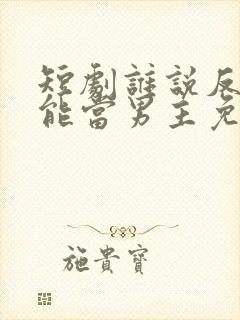 短劇誰說反
能當男主免
施貴寶